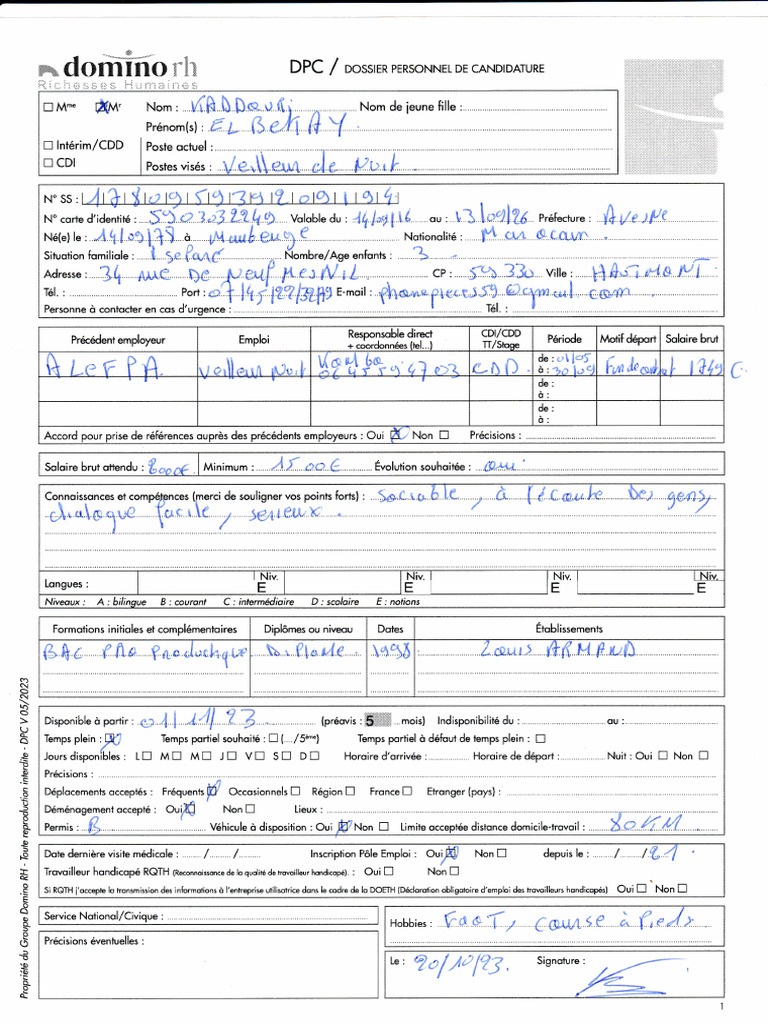 domino rh
Richesses Humaines
DPC / DOSSIER PERSONNEL DE CANDIDATURE
☐ Mme ☒ Mr Nom : KADDOURI Nom de jeune fille :
Prénom(s) : EL BEKAY
☐ Intérim/CDD Poste actuel :
☐ CDI Postes visés : Veilleur de Nuit
N° SS : 1 7 8 0 9 5 9 3 9 2 0 9 1 9 4
N° carte d'identité : 5903032249 Valable du : 14/09/16 au : 13/09/26 Préfecture : AVesNe
Né(e) le : 14/09/78 à Maubeuge Nationalité : Marocain
Situation familiale : séparé Nombre/Age enfants : 3
Adresse : 34 rue De Neuf MesNiL CP : 59330 Ville : HAUTMONT
Tél. : Port : 07/45/22/32/79 E-mail : phonepieces59@gmail com
Personne à contacter en cas d'urgence : Tél. :
Précédent employeur Emploi Responsable direct + coordonnées (tel...) CDI/CDD TT/Stage Période Motif départ Salaire brut
ALEFPA Veilleur Nuit Komba 0645594703 CDD de : 01/05 à : 30/09 Fin de contrat 1749 €
de : à :
de : à :
Accord pour prise de références auprès des précédents employeurs : Oui ☒ Non ☐ Précisions :
Salaire brut attendu : 2000€ Minimum : 1500€ Évolution souhaitée : oui
Connaissances et compétences (merci de souligner vos points forts) : sociable, à l'écoute Des gens,
dialogue facile, serieux.
Langues : Niv. E Niv. E Niv. E Niv. E
Niveaux : A : bilingue B : courant C : intermédiaire D : scolaire E : notions
Formations initiales et complémentaires Diplômes ou niveau Dates Établissements
BAC PRO Productique DiPlome 1998 Louis ARMAND
Disponible à partir : 01/11/23 (préavis : 5 mois) Indisponibilité du : au :
Temps plein : ☒ Temps partiel souhaité : ☐ (..../5ème) Temps partiel à défaut de temps plein : ☐
Jours disponibles : L ☐ M ☐ M ☐ J ☐ V ☐ S ☐ D ☐ Horaire d'arrivée : Horaire de départ : Nuit : Oui ☐ Non ☐
Précisions :
Déplacements acceptés : Fréquents ☒ Occasionnels ☐ Région ☐ France ☐ Etranger (pays) :
Déménagement accepté : Oui ☒ Non ☐ Lieux :
Permis : B Véhicule à disposition : Oui ☒ Non ☐ Limite acceptée distance domicile-travail : 80KM
Date dernière visite médicale : / / Inscription Pôle Emploi : Oui ☒ Non ☐ depuis le : / / 21
Travailleur handicapé RQTH (Reconnaissance de la qualité de travailleur handicapé). : Oui ☐ Non ☐
Si RQTH j'accepte la transmission des informations à l'entreprise utilisatrice dans le cadre de la DOETH (Déclaration obligatoire d'emploi des travailleurs handicapés) Oui ☐ Non ☐
Service National/Civique :
Précisions éventuelles :
Hobbies : FOOT, course à Pieds
Le : 20/10/23. Signature :
Propriété du Groupe Domino RH - Toute reproduction interdite - DPC V 05/2023
1